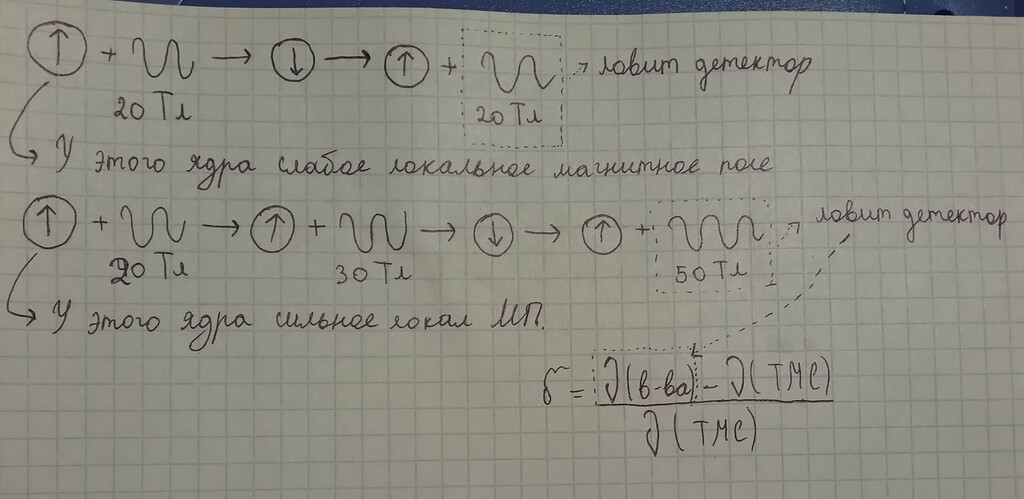 ↑ + → ↓ → ↑ + → ловит детектор
20 Тл 20 Тл
У этого ядра слабое локальное магнитное поле
↑ + → ↑ + → ↓ → ↑ + → ловит детектор
20 Тл 30 Тл 50 Тл
У этого ядра сильное локал МП.
δ = (ν(в-ва) - ν(ТМС)) / ν(ТМС)